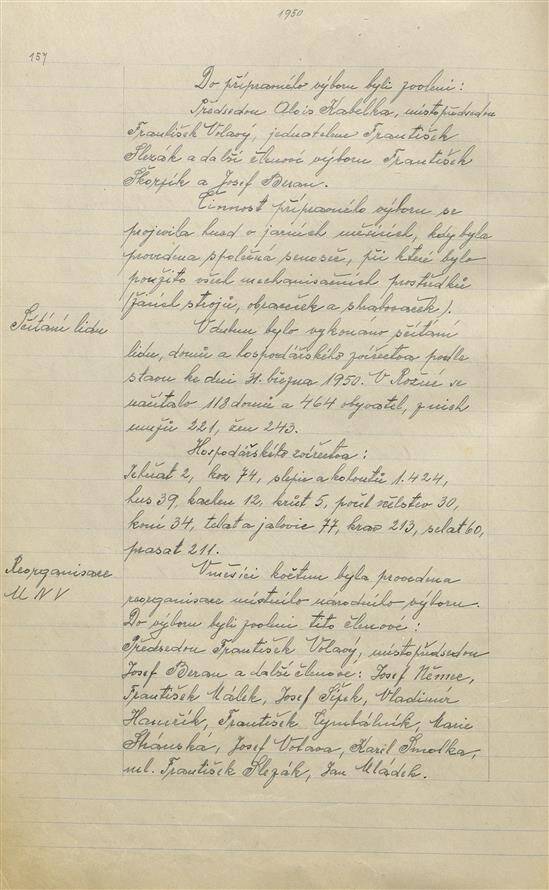 1950
157
Do přípravného výboru byli zvoleni:
Předsedou Alois Kabelka, místopředsedou
František Volavý, jednatelem František
Slezák a další členové výboru František
Škorpík a Josef Beran.
Činnost přípravného výboru se
projevila hned v jarních měsících, kdy byla
provedena společná senoseč, při které bylo
použito všech mechanisačních prostředků
(žacích strojů, obraceček a shrabovaček).
Sčítání lidu
V dubnu bylo vykonáno sčítání
lidu, domů a hospodářského zvířectva podle
stavu ke dni 31. března 1950. V Rožné se
načítalo 118 domů a 464 obyvatel, z nich
mužů 221, žen 243.
Hospodářského zvířectva:
kůzlat 2, koz 74, slepic a kohoutů 1.424,
hus 39, kachen 12, krůt 5, počet včelstev 30,
koní 34, telat a jalovic 77, krav 213, selat 60,
prasat 211.
Reorganisace
MNV
V měsíci květnu byla provedena
reorganisace místního národního výboru.
Do výboru byli zvoleni tito členové:
Předsedou František Volavý, místopředsedou
Josef Beran a další členové: Josef Němec,
František Málek, Josef Šípek, Vladimír
Havrlík, František Cymbálník, Marie
Stránská, Josef Votava, Karel Smolka,
ml. František Slezák, Jan Mládek.